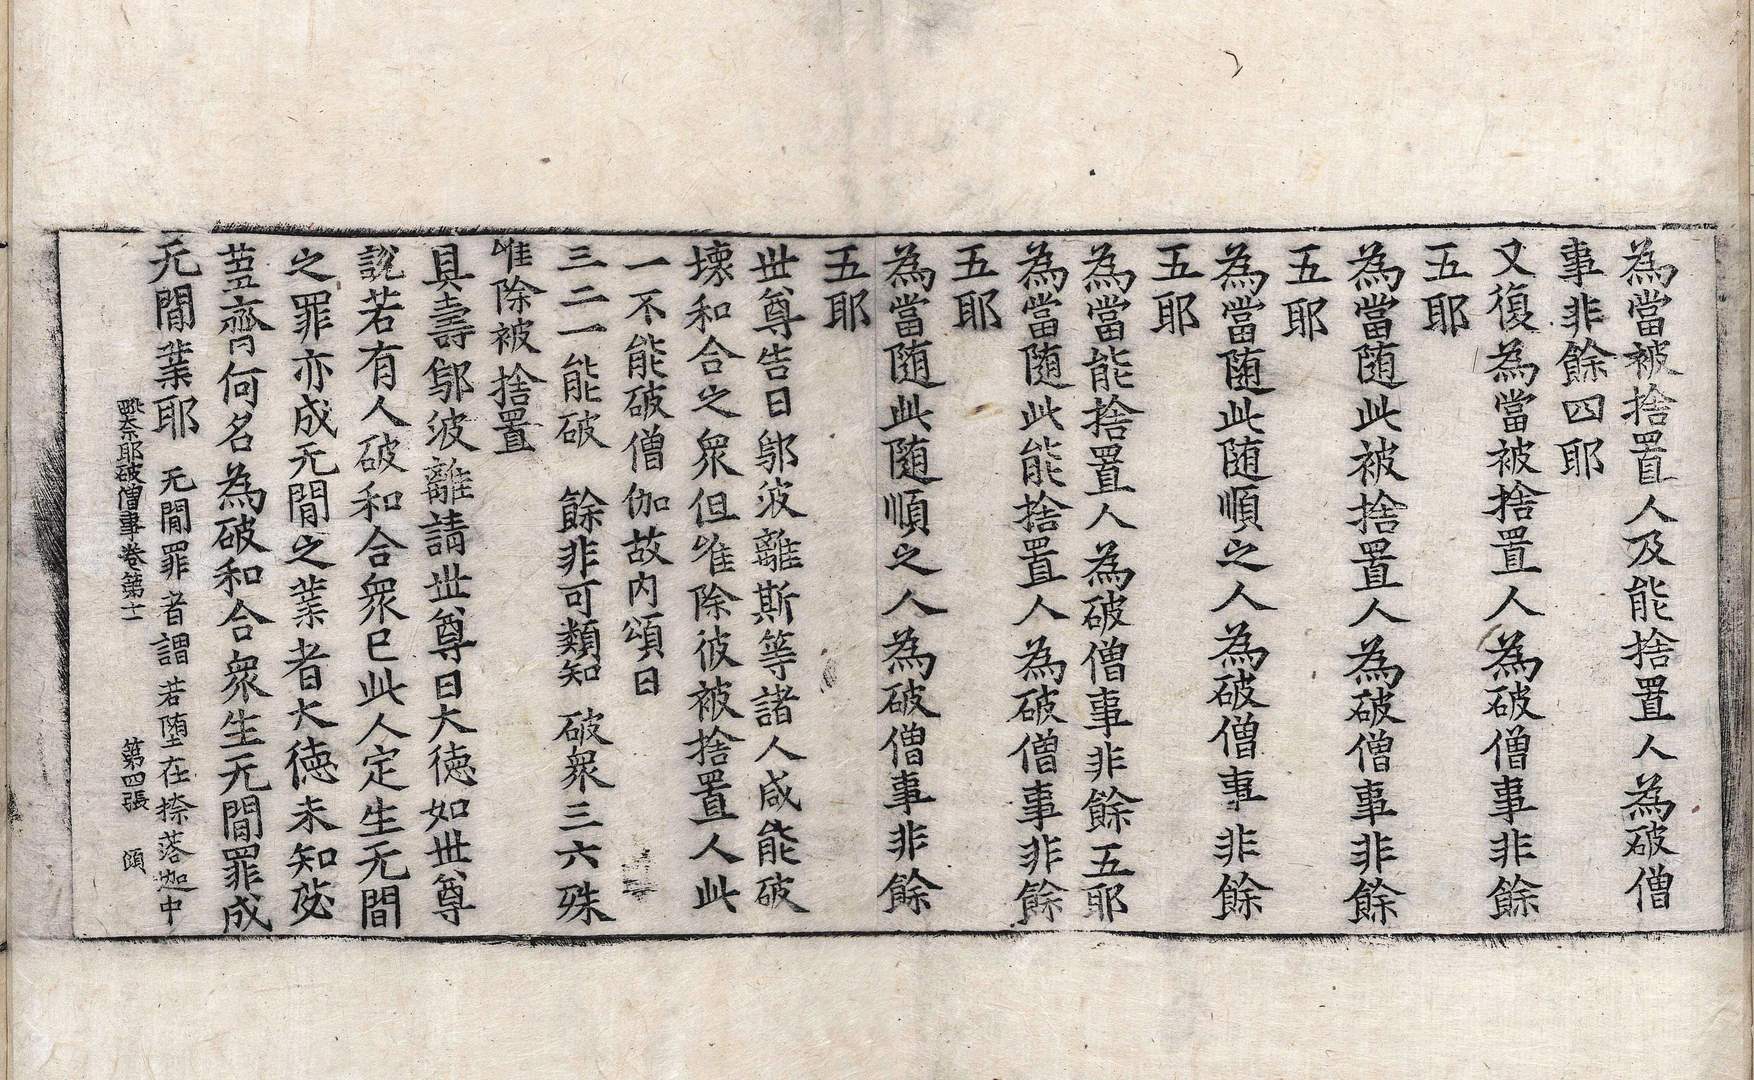 為當被捨置人及能捨置人為破僧
事非餘四耶
又復為當被捨置人為破僧事非餘
五耶
為當随此被捨置人為破僧事非餘
五耶
為當随此随順之人為破僧事非餘
五耶
為當能捨置人為破僧事非餘五耶
為當随此能捨置人為破僧事非餘
五耶
為當随此随順之人為破僧事非餘
五耶
世尊告曰鄔波離斯等諸人咸能破
壞和合之衆但唯除彼被捨置人此
一不能破僧伽故内頌曰
三二一能破 餘非可類知 破衆三六殊
唯除被捨置
具壽鄔波離請世尊曰大徳如世尊
說若有人破和合衆已此人定生无間
之罪亦成无間之業者大徳未知苾
蒭齊何名為破和合衆生无間罪成
无間業耶 无間罪者謂若堕在捺落迦中
毗奈耶破僧事卷第十一 第四張 頌